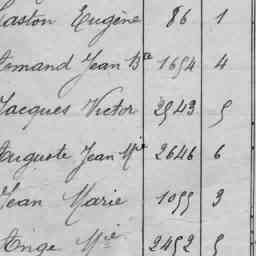 Gaston Eugène 86 1
Armand Jean Bte 1654 4
Jacques Victor 2543 5
Auguste Jean Mie 2646 6
Jean Marie 1055 3
Ange Mie 2452 5